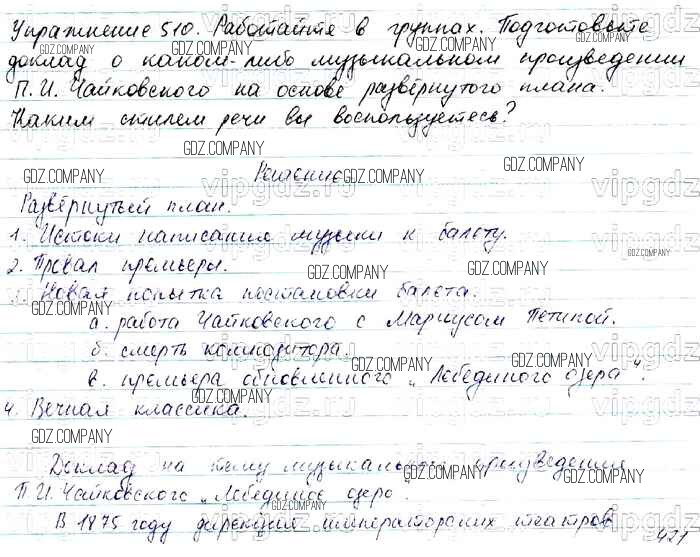 Упражнение 510. Работайте в группах. Подготовьте
доклад о каком-либо музыкальном произведении
П.И. Чайковского на основе развёрнутого плана.
Каким стилем речи вы воспользуетесь?
Решение
Развёрнутый план.
1. Истоки написания музыки к балету.
2. Провал премьеры.
3. Новая попытка постановки балета.
а. работа Чайковского с Мариусом Петипой.
б. смерть композитора.
в. премьера обновлённого „Лебединого озера“.
4. Вечная классика.
Доклад на тему музыкального произведения
П.И. Чайковского „Лебединое озеро.
В 1875 году дирекция императорских театров
421
GDZ.COMPANY
vipgdz.ru